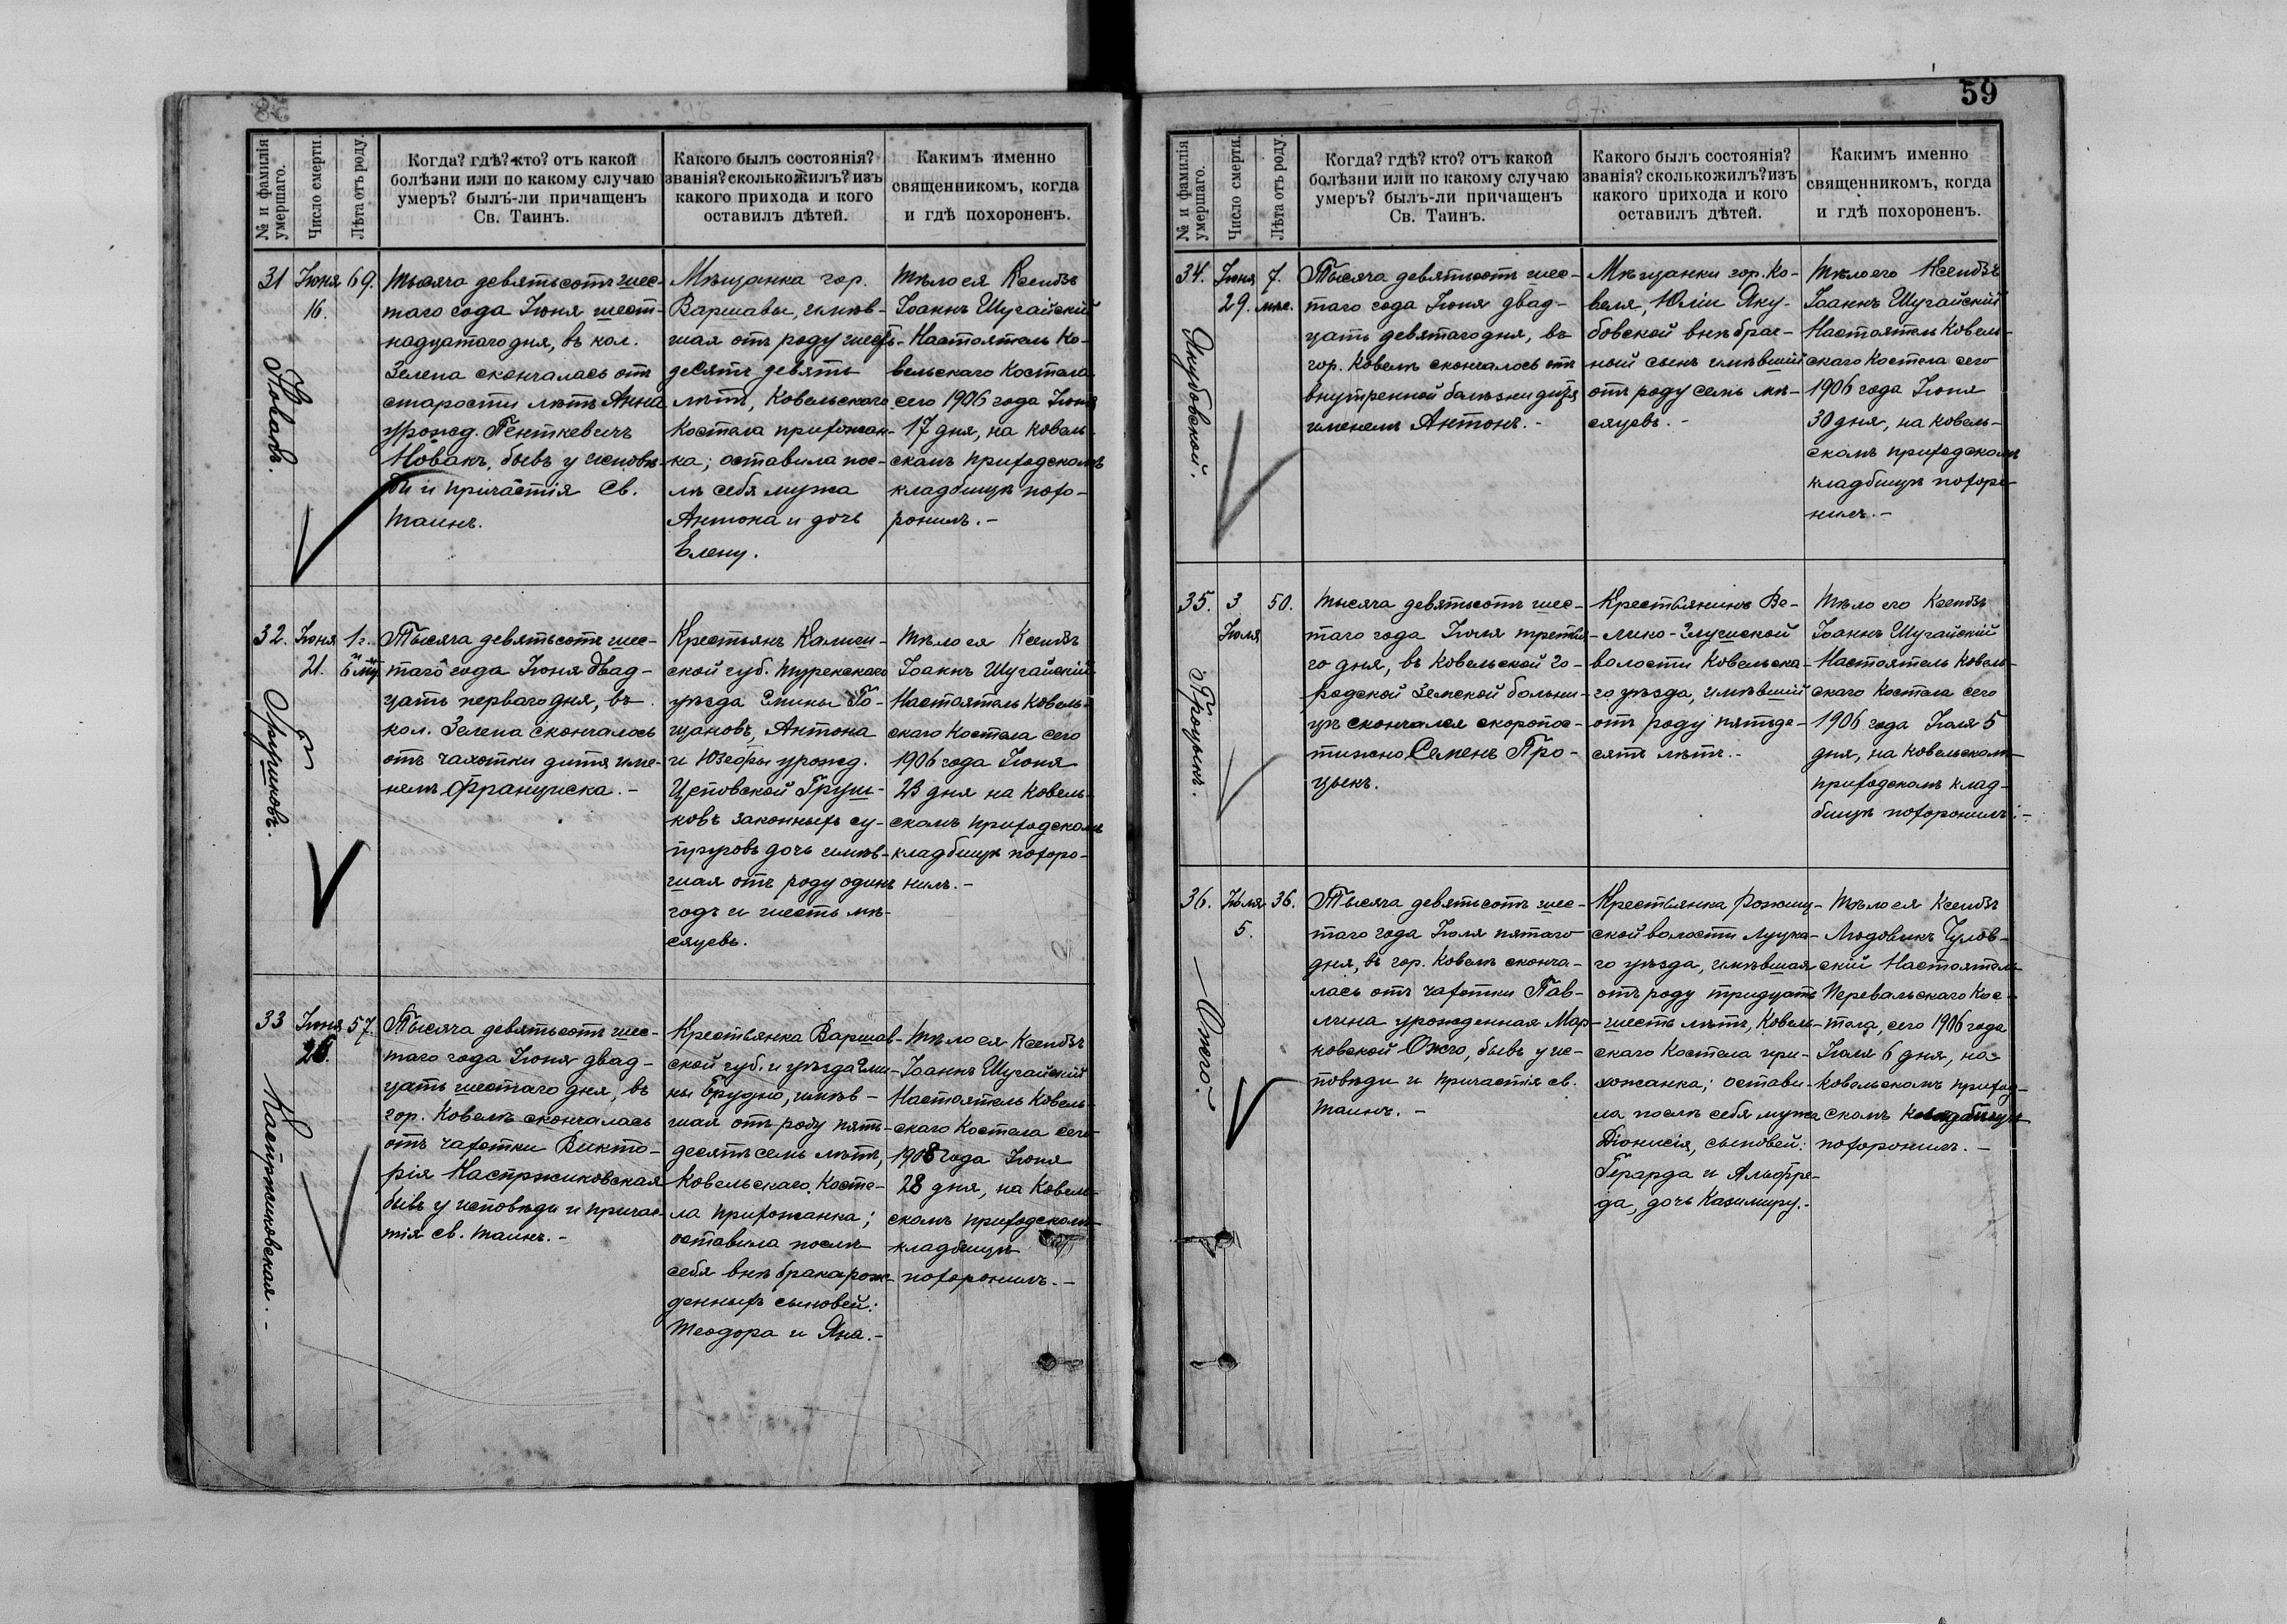 59
№ и фамилія
умершаго.
Число смерти.
Лѣта отъ роду.
Когда? гдѣ? кто? отъ какой
болѣзни или по какому случаю
умеръ? былъ-ли причащенъ
Св. Таинъ.
Какого былъ состоянія?
званія? сколько жилъ? изъ
какого прихода и кого
оставилъ дѣтей.
Какимъ именно
священникомъ, когда
и гдѣ похороненъ.
31
Новакъ.
Іюня
16.
69.
Тысяча девятьсотъ шес-
таго года Іюня шест-
надцатаго дня, въ кол.
Зелена скончалась отъ
старости лѣтъ Анна
урожд. Пенткевичъ
Новакъ, бывъ у исповѣ-
ди и причастія Св.
Таинъ.
Мѣщанка гор.
Варшавы, имѣв-
шая отъ роду шесть-
десятъ девять
лѣтъ, Ковельскаго
Костела прихожан-
ка; оставила пос-
лѣ себя мужа
Антона и дочь
Елену.
Тѣло ея Ксендзъ
Іоаннъ Шугайскій
Настоятель Ко-
вельскаго Костела
сего 1906 года Іюня
17 дня, на Ковель-
скомъ приходскомъ
кладбищѣ похо-
ронилъ. -
32.
Грушковъ.
Іюня
21.
1 г.
6 мц
Тысяча девятьсотъ шес-
таго года Іюня двад-
цать перваго дня, въ
кол. Зелена скончалось
отъ чахотки дитя име-
немъ Франциска. -
Крестьянъ Калиш-
ской губ. Турекскаго
уѣзда Гмины
Антона
и Юзефы урожд.
Груш-
ковъ законныхъ су-
пруговъ дочь имѣв-
шая отъ роду одинъ
годъ и шесть мѣ-
сяцевъ.
Тѣло ея Ксендзъ
Іоаннъ Шугайскій
Настоятель Ковель-
скаго Костела сего
1906 года Іюня
23 дня на Ковель-
скомъ приходскомъ
кладбищѣ похоро-
нилъ. -
33
Каспржиковская. -
Іюня
26.
57.
Тысяча девятьсотъ шес-
таго года Іюня двад-
цать шестаго дня, въ
гор. Ковелѣ скончалась
отъ чахотки Викто-
рія Каспржиковская
бывъ у исповѣди и причас-
тія св. Таинъ. -
Крестьянка Варшав-
ской губ. и уѣзда Гми-
ны Брудно, имѣв-
шая отъ роду пять-
десятъ семь лѣтъ,
Ковельскаго Косте-
ла прихожанка;
оставила послѣ
себя внѣ брака рож-
денныхъ сыновей:
Теодора и Яна. -
Тѣло ея Ксендзъ
Іоаннъ Шугайскій
Настоятель Ковель-
скаго Костела сего
1906 года Іюня
28 дня, на Ковель-
скомъ приходскомъ
кладбищѣ
похоронилъ. -
№ и фамилія
умершаго.
Число смерти.
Лѣта отъ роду.
Когда? гдѣ? кто? отъ какой
болѣзни или по какому случаю
умеръ? былъ-ли причащенъ
Св. Таинъ.
Какого былъ состоянія?
званія? сколько жилъ? изъ
какого прихода и кого
оставилъ дѣтей.
Какимъ именно
священникомъ, когда
и гдѣ похороненъ.
34.
Якубовской.
Іюня
29.
7.
мѣс.
Тысяча девятьсотъ шес-
таго года Іюня двад-
цать девятаго дня, въ
гор. Ковелѣ скончалось отъ
внутренной болѣзни дитя
именемъ Антонъ. -
Мѣщанки гор. Ко-
веля, Юліи Яку-
бовской внѣбрач-
ный сынъ имѣвшій
отъ роду семь мѣ-
сяцевъ. -
Тѣло его Ксендзъ
Іоаннъ Шугайскій
Настоятель Ковель-
скаго Костела сего
1906 года Іюня
30 дня, на Ковель-
скомъ приходскомъ
кладбищѣ похоро-
нилъ. -
35.
Процыкъ.
3
Іюля
50.
Тысяча девятьсотъ шес-
таго года Іюля третья-
го дня, въ Ковельской го-
родской Земской больни-
цѣ скончался скоропос-
тижно Семенъ Про-
цыкъ.
Крестьянинъ Ве-
лико-Глушской
волости Ковельска-
го уѣзда, имѣвшій
отъ роду пятьде-
сятъ лѣтъ. -
Тѣло его Ксендзъ
Іоаннъ Шугайскій
Настоятель Ковель-
скаго Костела сего
1906 года Іюля 5
дня, на Ковельскомъ
приходскомъ клад-
бищѣ похоронилъ. -
36.
Ожго.
Іюля
5.
36.
Тысяча девятьсотъ шес-
таго года Іюля пятаго
дня, въ гор. Ковелѣ сконча-
лась отъ чахотки Пав-
лина урожденная Мар-
ковской Ожго, бывъ у ис-
повѣди и причастія св.
Таинъ. -
Крестьянка Рожищ-
ской волости Луцка-
го уѣзда, имѣвшая
отъ роду тридцать
шесть лѣтъ, Ковель-
скаго Костела при-
хожанка; остави-
ла послѣ себя мужа
Діонисія, сыновей:
Герарда и Альфре-
да, дочь Казимиру. -
Тѣло ея Ксендзъ
Людовикъ
Настоятель
Перевальскаго Кос-
тела, сего 1906 года
Іюля 6 дня, на
Ковельскомъ приход-
скомъ кладбищѣ
похоронилъ. -